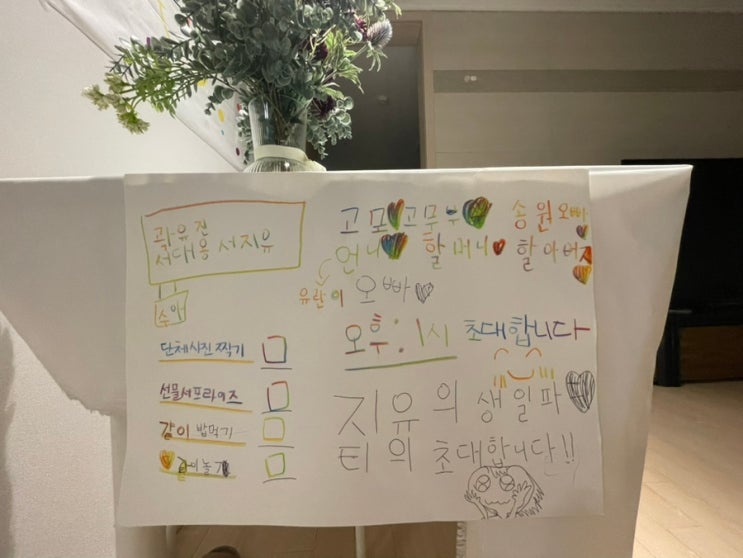 곽유진
서대웅 서지유
수아
단체사진 찍기
선물서프라이즈
같이 밥먹기
같이놀기
고모 고모부 송원오빠
언니 할머니 할아버지
유찬이 오빠
오후:1시 초대합니다
지유의 생일파
티의 초대합니단!!